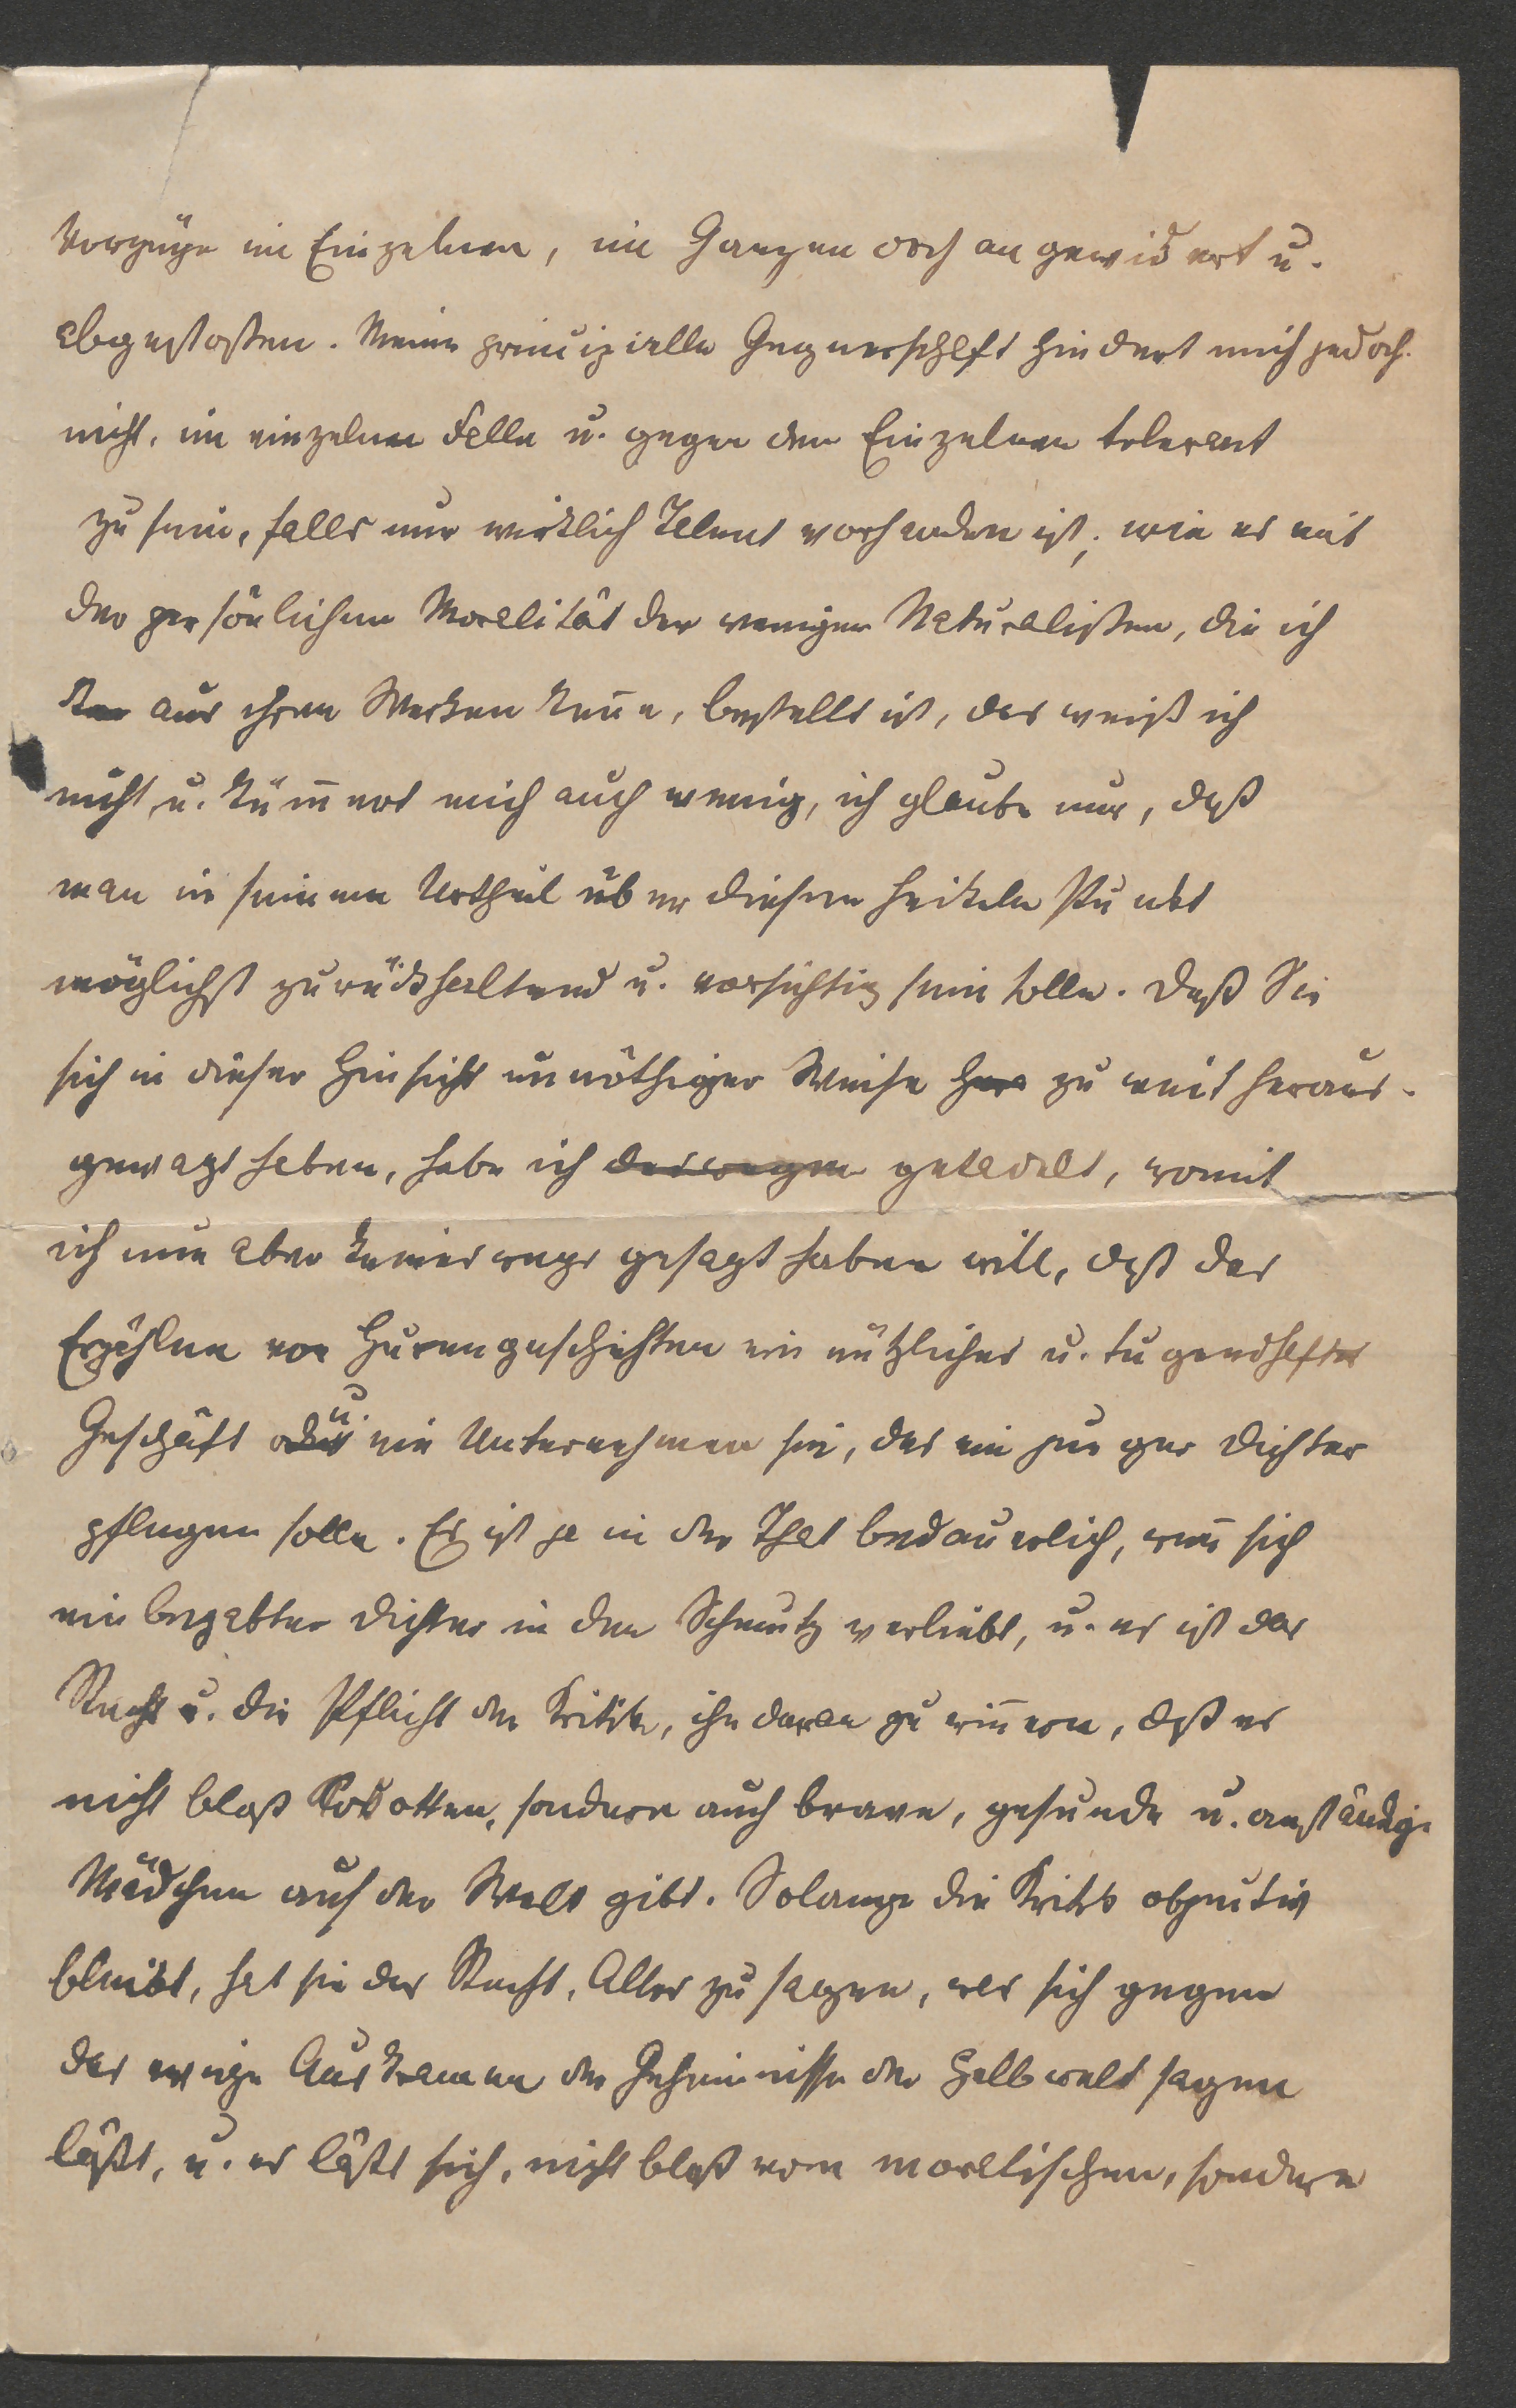 Vorzüge im Einzelnen, im Ganzen doch angewidert u.
abgestoßen. Meine principielle Gegnerschaft hindert mich jedoch
nicht, im einzelnen Falle u. gegen den Einzelnen tolerant
zu sein, falls nur wirklich Talent vorhanden ist; wie es mit
der persönlichen Moralität der wenigen Naturalisten, die ich
aus ihren Werken kenne, bestellt ist, das weiß ich
nicht, u. kümmert mich auch wenig, ich glaube nur, daß
man in seinem Urtheil über diesen heikeln Punkt
möglichst zurückhaltend u. vorsichtig sein solle. Daß Sie
sich in dieser Hinsicht unnöthiger Weise zu weit heraus-
gewagt haben, habe ich deswegen getadelt, womit
ich nun aber keineswegs gesagt haben will, daß das
Erzählen von Hurengeschichten ein nützliches u. tugendhaftes
Geschäft u. ein Unternehmen sei, das ein junger Dichter
pflegen solle. Es ist ja in der That bedauerlich, wenn sich
ein begabter Dichter in den Schmutz verliebt, u. es ist das
Recht u. die Pflicht der Kritik, ihn daran zu erinnern, daß es
nicht bloß Kokotten, sondern auch brave, gesunde u. anständige
Mädchen auf der Welt gibt. Solange die Kritik objectiv
bleibt, hat sie das Recht, Alles zu sagen, was sich gegen
das ewige Auskramen der Geheimnisse der Halbwelt sagen
läßt, u. es läßt sich, nicht bloß vom moralischen, sondern